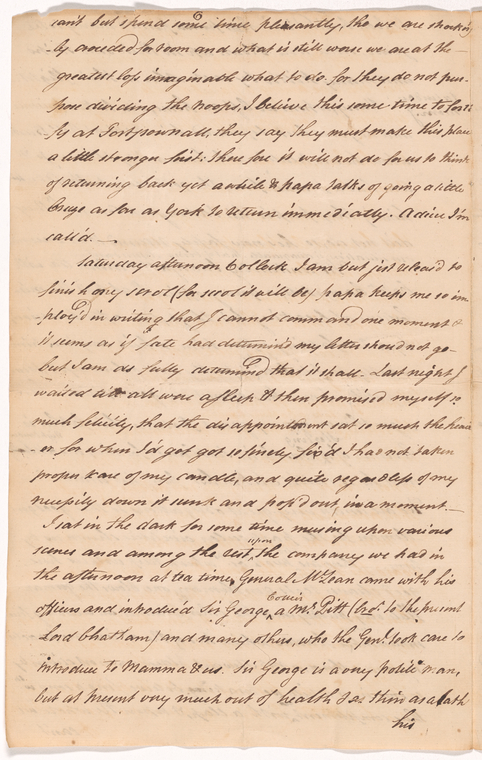 can't but spend some time pleasantly, tho we are shockin
-ly crouded for room and what is still worse we are at the
greatest loss imaginable what to do. for they do not pur-
pose dividing the troops, I believe this some time to forti
fy at Fortpownall, they say they must make this place
a little stronger first: therefore it will not do for us to think
of returning back yet awhile & papa talks of going a little
Cruze as far as York to return immediatly. Adieu I'm
call'd. —
Saturday afternoon 6 o'Clock I am but just releas'd to
finish my scrol (for scrol it will be) papa keeps me so im
-ploy'd in writing that I cannot command one moment &
it seems as if fate had determin'd my letter shoud not go—
but I am as fully determind that it shall. Last night I
waited till all were asleep & then promised myself so
much felicity, that the disappointment sat so much the heavi
-er, for when I'd got got so finely fix'd I had not taken
proper kare of my candle, and quite regardless of my
necessity down it sunk and pop'd out, in a moment. —
I sat in the dark for some time musing upon various
scenes and among the rest, upon the company we had in
the afternoon at tea time, Generale McLean came with his
officers and introduc'd Sir George Collier a Mr. Pitt (Bror. to the present
Lord Chatham) and many others, who the Genl. took care to
introduce to Mamma & us. Sir George is a very polite man,
but at present very much out of health & as thin as a lath
his